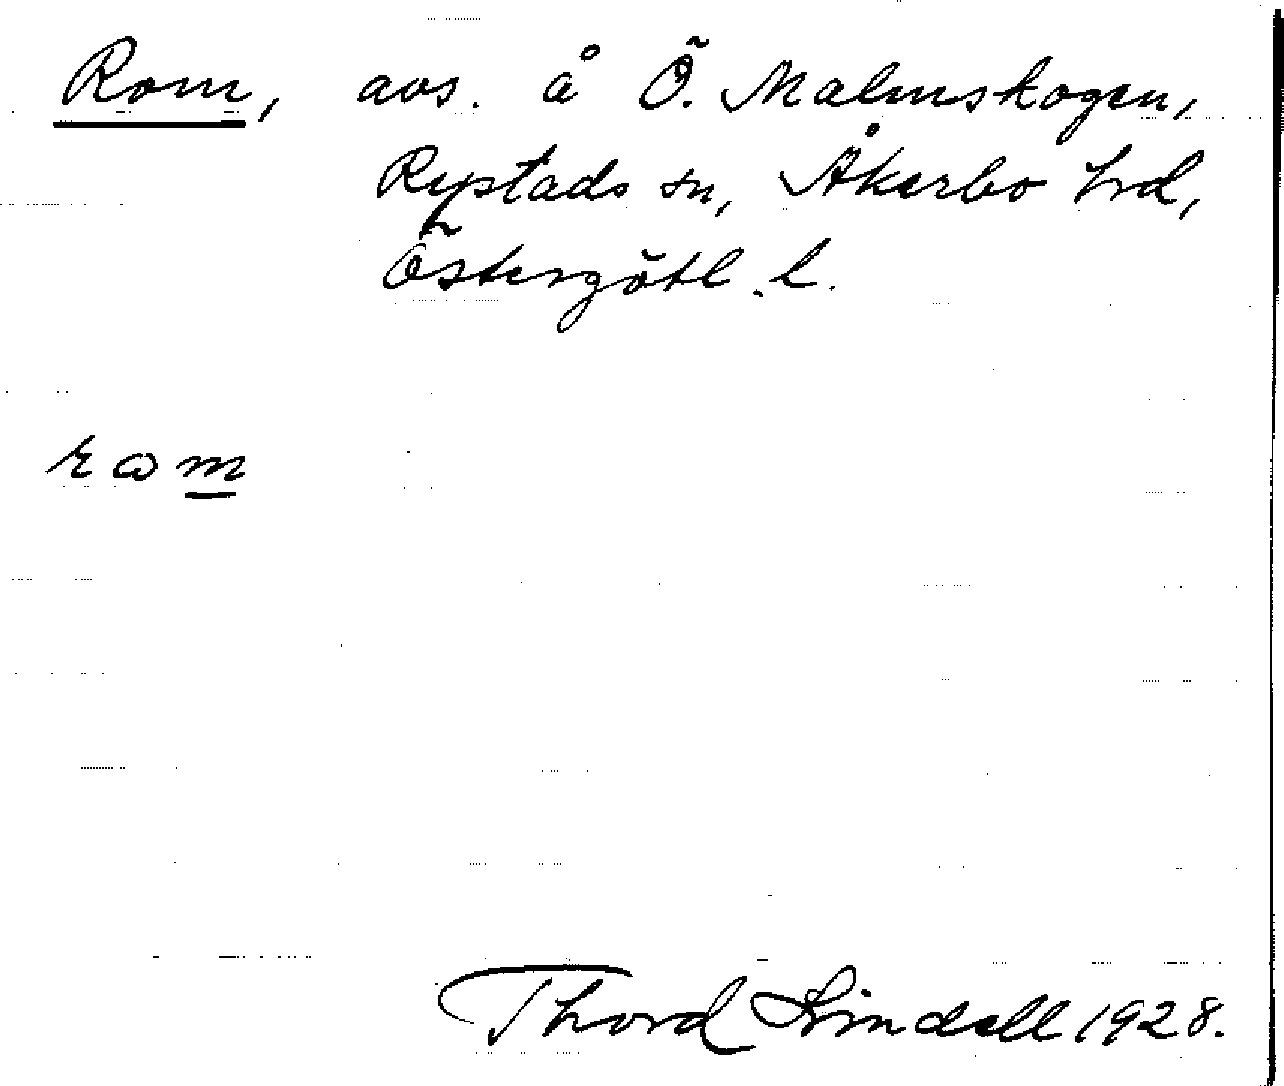 Rom, avs. å Ö. Malmskogen,
Rystads sn, Åkerbo hd,
Östergötl. l.
rωm
Thord Lindell 1928.